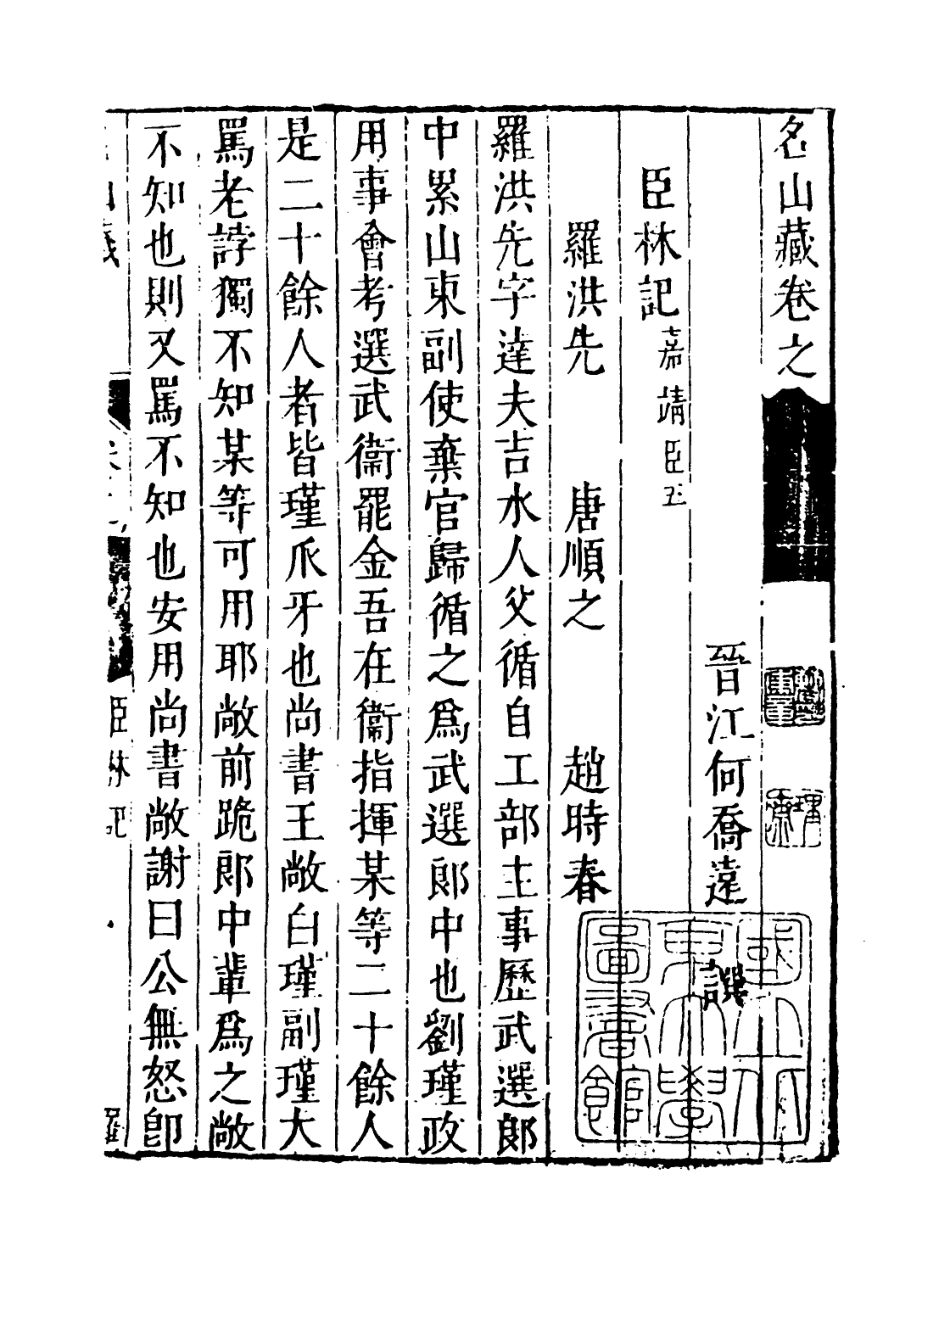 名山藏卷之
晉江何喬遠譔
臣林記 嘉靖臣五
羅洪先 唐順之 趙時春
羅洪先字達夫吉水人父循自工部主事歷武選郎
中累山東副使棄官歸循之爲武選郎中也劉瑾政
用事會考選武衞罷金吾在衞指揮某等二十餘人
是二十餘人者皆瑾爪牙也尚書王敞白瑾副瑾大
罵老誖獨不知某等可用耶敞前跪郎中輩爲之敞
不知也則又罵不知也安用尚書敞謝曰公無怒卽
臣林記
國立北平大學圖書館